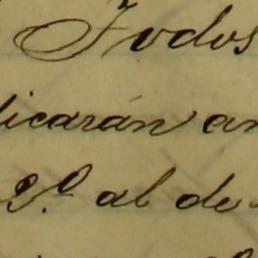 Todos
licarán an
2.º al de